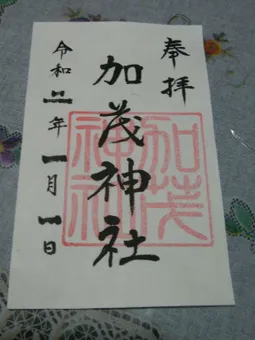 奉拝
加茂神社
加茂神社
令和二年一月一日